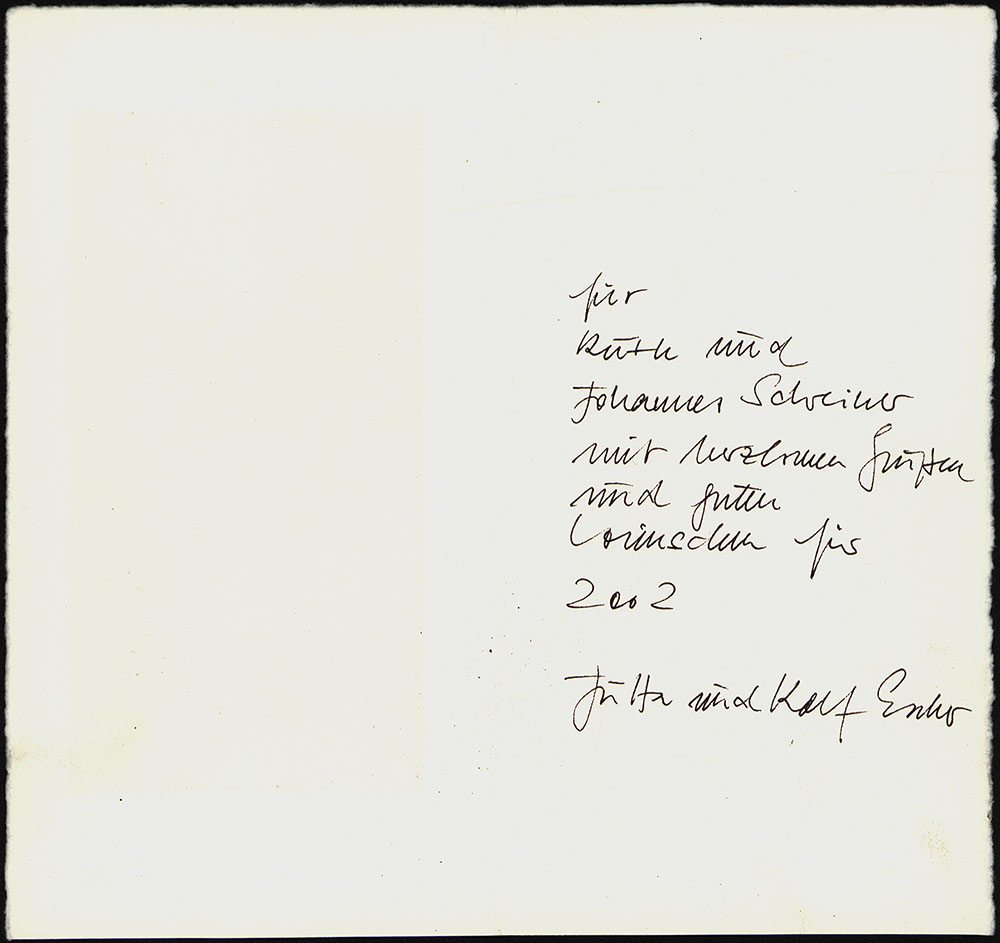 für
Ruth und
Johannes Schreiner
mit herzlichen Grüßen
und guten
Wünschen für
2002
Jutta und Rolf Escher